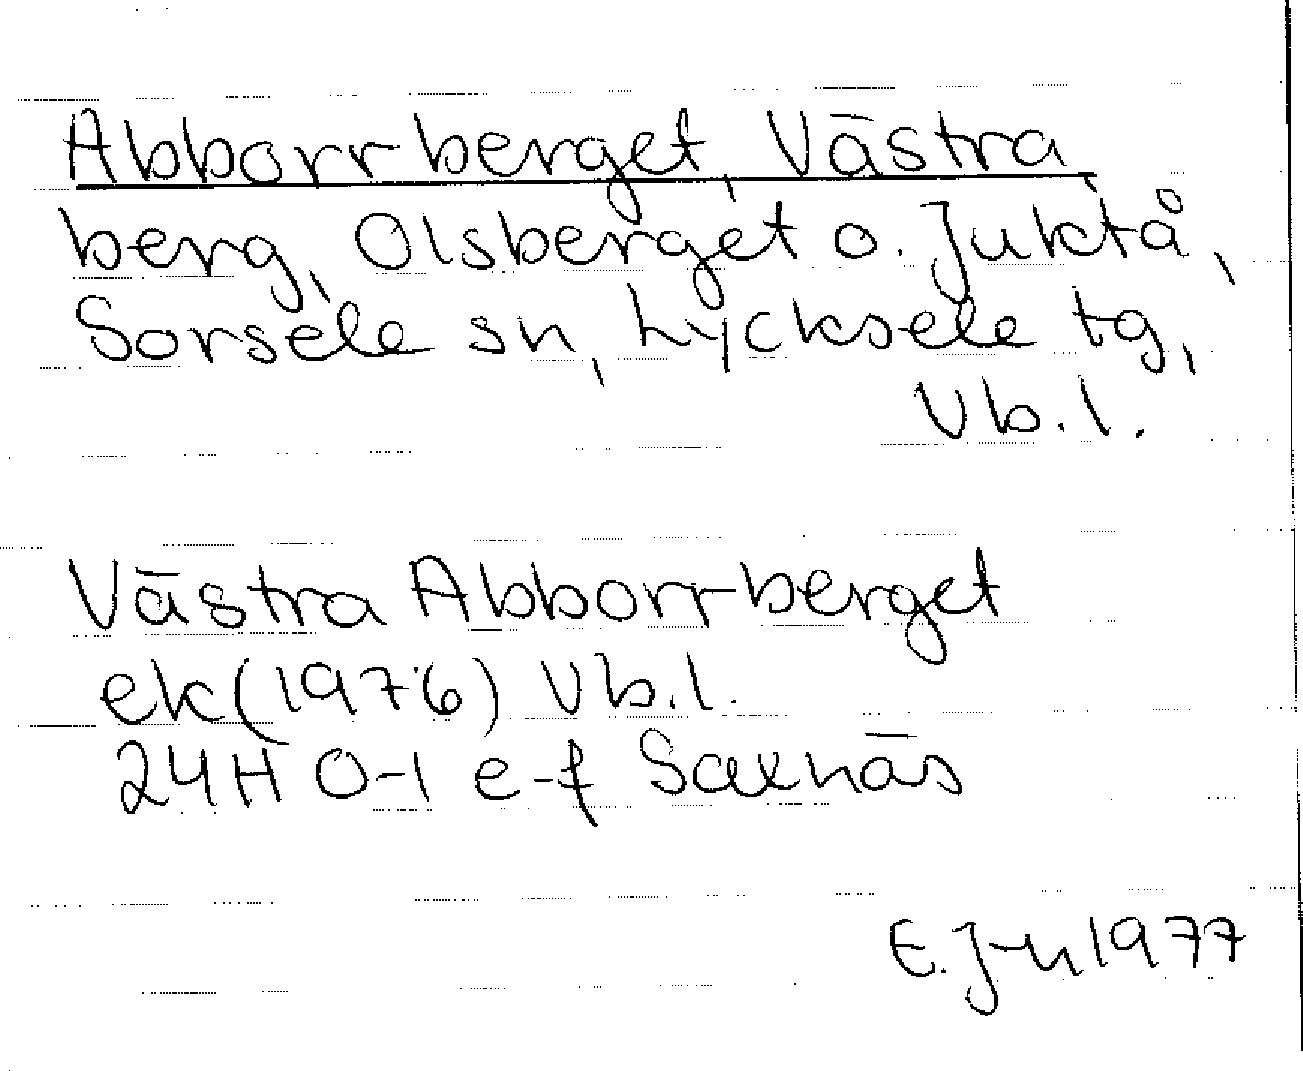 Abborrberget, Västra
berg, Olsberget o. Juktå,
Sorsele sn, Lycksele tg,
Vb.l.
Västra Abborrberget
ek (1976) Vb.l.
24H 0-1 e-f Saxnäs
E. J-n 1977